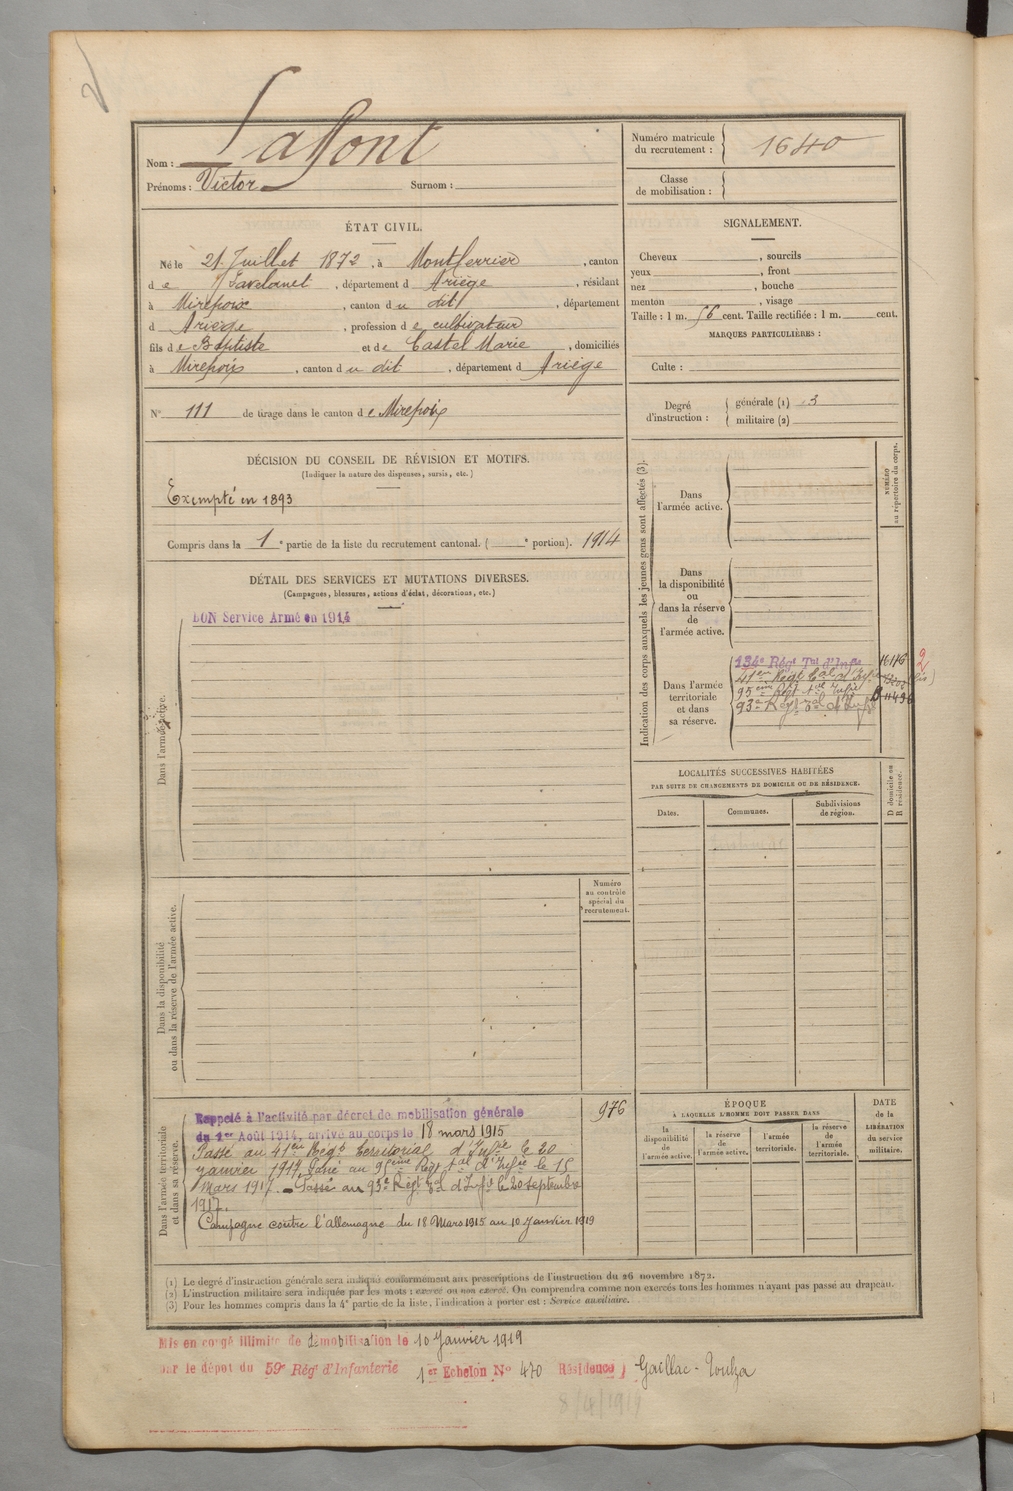 Nom : Lafont
Prénoms : Victor Surnom :
Numéro matricule du recrutement : 1640
Classe de mobilisation :
ÉTAT CIVIL.
Né le 21 Juillet 1872, à Montferrier, canton
de Lavelanet, département d Ariège, résidant
à Mirepoix, canton du dit, département
d Ariège, profession de cultivateur
fils de Baptiste et de Castel Marie, domiciliés
à Mirepoix, canton du dit, département d Ariège
N° 111 de tirage dans le canton de Mirepoix
SIGNALEMENT.
Cheveux , sourcils
yeux , front
nez , bouche
menton , visage
Taille : 1 m. 56 cent. Taille rectifiée : 1 m. cent.
MARQUES PARTICULIÈRES :
Culte :
Degré d'instruction : générale (1) 3
militaire (2)
DÉCISION DU CONSEIL DE RÉVISION ET MOTIFS.
(Indiquer la nature des dispenses, sursis, etc.)
Exempté en 1893
Compris dans la 1e partie de la liste du recrutement cantonal. ( e portion). 1914
DÉTAIL DES SERVICES ET MUTATIONS DIVERSES.
(Campagnes, blessures, actions d'éclat, décorations, etc.)
BON Service Armé en 1914
Dans l'armée active.
Dans la disponibilité
ou dans la réserve de l'armée active.
Numéro
au contrôle
spécial du
recrutement.
Dans l'armée territoriale
et dans sa réserve.
Rappelé à l'activité par décret de mobilisation générale
du 1er Août 1914, arrivé au corps le 18 mars 1915
Passé au 41ème Régt territorial d'Infie le 20
janvier 1917. Passé au 95ème Régt tal d'Infie le 15
Mars 1917. - Passé au 93e Régt Tal d'Infie le 20 septembre
1917.
Campagne contre l'Allemagne du 18 Mars 1915 au 10 janvier 1919
976
Indication des corps auxquels les jeunes gens sont affectés (3).
NUMÉRO
au répertoire du corps.
Dans
l'armée active.
Dans
la disponibilité
ou
dans la réserve
de
l'armée active.
Dans l'armée
territoriale
et dans
sa réserve.
134e Régt Tal d'Infie
41ème Régt tal d'Infie
95ème Régt tal Infie
93e Régt Tal d'Infie
2
LOCALITÉS SUCCESSIVES HABITÉES
PAR SUITE DE CHANGEMENTS DE DOMICILE OU DE RÉSIDENCE.
Dates. Communes. Subdivisions de région.
D domicile ou
R résidence.
ÉPOQUE
À LAQUELLE L'HOMME DOIT PASSER DANS
la disponibilité de l'armée active.
la réserve de l'armée active.
l'armée territoriale.
la réserve de l'armée territoriale.
DATE
de la
LIBÉRATION
du service
militaire.
(1) Le degré d'instruction générale sera indiqué conformément aux prescriptions de l'instruction du 26 novembre 1872.
(2) L'instruction militaire sera indiquée par les mots : exercé ou non exercé. On comprendra comme non exercés tous les hommes n'ayant pas passé au drapeau.
(3) Pour les hommes compris dans la 4e partie de la liste, l'indication à porter est : Service auxiliaire.
Mis en congé illimité de démobilisation le 10 Janvier 1919
par le dépôt du 59e Régt d'Infanterie 1er Echelon N° 470 Résidence Gaillac-Toulza
8/4/1919